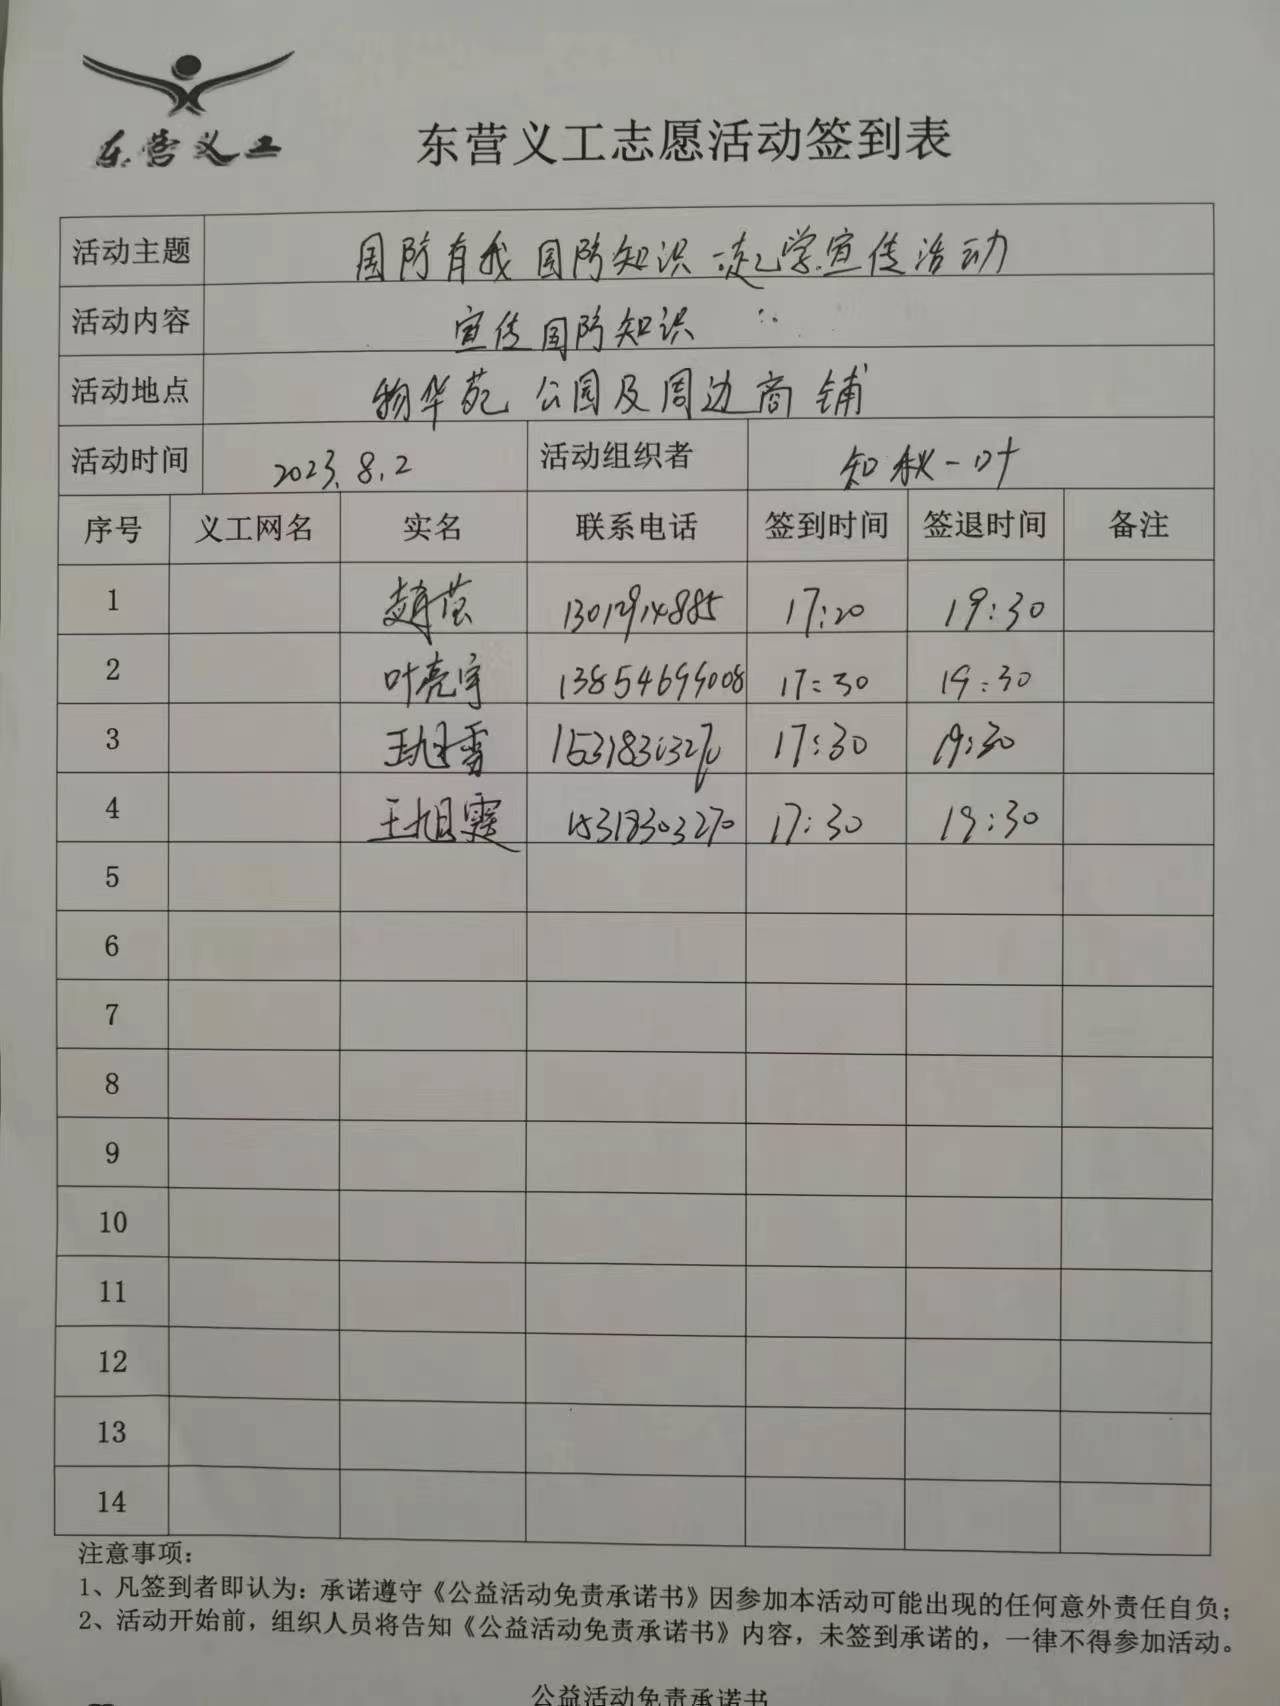 东营义工
东营义工志愿活动签到表
活动主题 国防有我 国防知识一起学宣传活动
活动内容 宣传国防知识
活动地点 物华苑 公园及周边商铺
活动时间 2023.8.2 活动组织者 知秋一叶
序号 义工网名 实名 联系电话 签到时间 签退时间 备注
1 17:20 19:30
2 叶亮宇 17:30 19:30
3 17:30 19:30
4 王旭霆 15318303270 17:30 19:30
5
6
7
8
9
10
11
12
13
14
注意事项：
1、凡签到者即认为：承诺遵守《公益活动免责承诺书》因参加本活动可能出现的任何意外责任自负；
2、活动开始前，组织人员将告知《公益活动免责承诺书》内容，未签到承诺的，一律不得参加活动。
公益活动免责承诺书